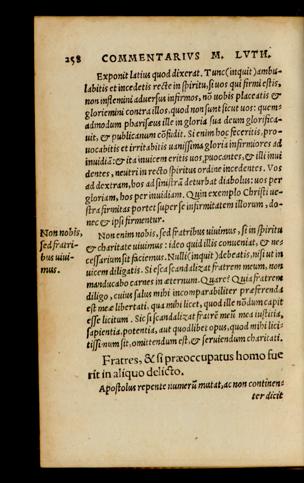 258 COMMENTARIVS M. LVTH.
Exponit latius quod dixerat. Tunc (inquit) ambu-
labitis et incedetis recte in spiritu, si uos qui firmi estis,
non inflemini aduersus infirmos, nō uobis placeatis &
gloriemini contra illos, quod non sunt sicut uos: quem-
admodum pharisæus ille in gloria sua deum glorifica-
uit, & publicanum cōfudit. Si enim hoc feceritis, pro-
uocabitis et irritabitis uanissima gloria infirmiores ad
inuidiā: & ita inuicem eritis uos, puocantes, & illi inui
dentes, neutri in recto spiritus ordine incedentes. Vos
ad dextram, hos ad sinistrā deturbat diabolus: uos per
gloriam, hos per inuidiam. Quin exemplo Christi ue-
stra firmitas portet super se infirmitatem illorum, do-
nec & ipsi firmentur.
Non enim nobis, sed fratribus uiuimus, si in spiritu
& charitate uiuimus: ideo quid illis conueniat, & ne-
cessarium sit faciemus. Nulli (inquit) debeatis, nisi ut in
uicem diligatis. Si esca scandalizat fratrem meum, non
manducabo carnes in æternum. Quare? Quia fratrem
diligo, cuius salus mihi incomparabiliter præferenda
est meæ libertati, qua mihi licet, quod ille nōdum capit
esse licitum. Sic si scandalizat fratrē meū mea iustitia,
sapientia, potentia, aut quodlibet opus, quod mihi lici-
tissimum sit, omittendum est, & seruiendum charitati.
Non nobis,
sed fratri-
bus uiui-
mus.
Fratres, & si præoccupatus homo fue
rit in aliquo delicto.
Apostolus repente numerū mutat, ac non continen-
ter dicit